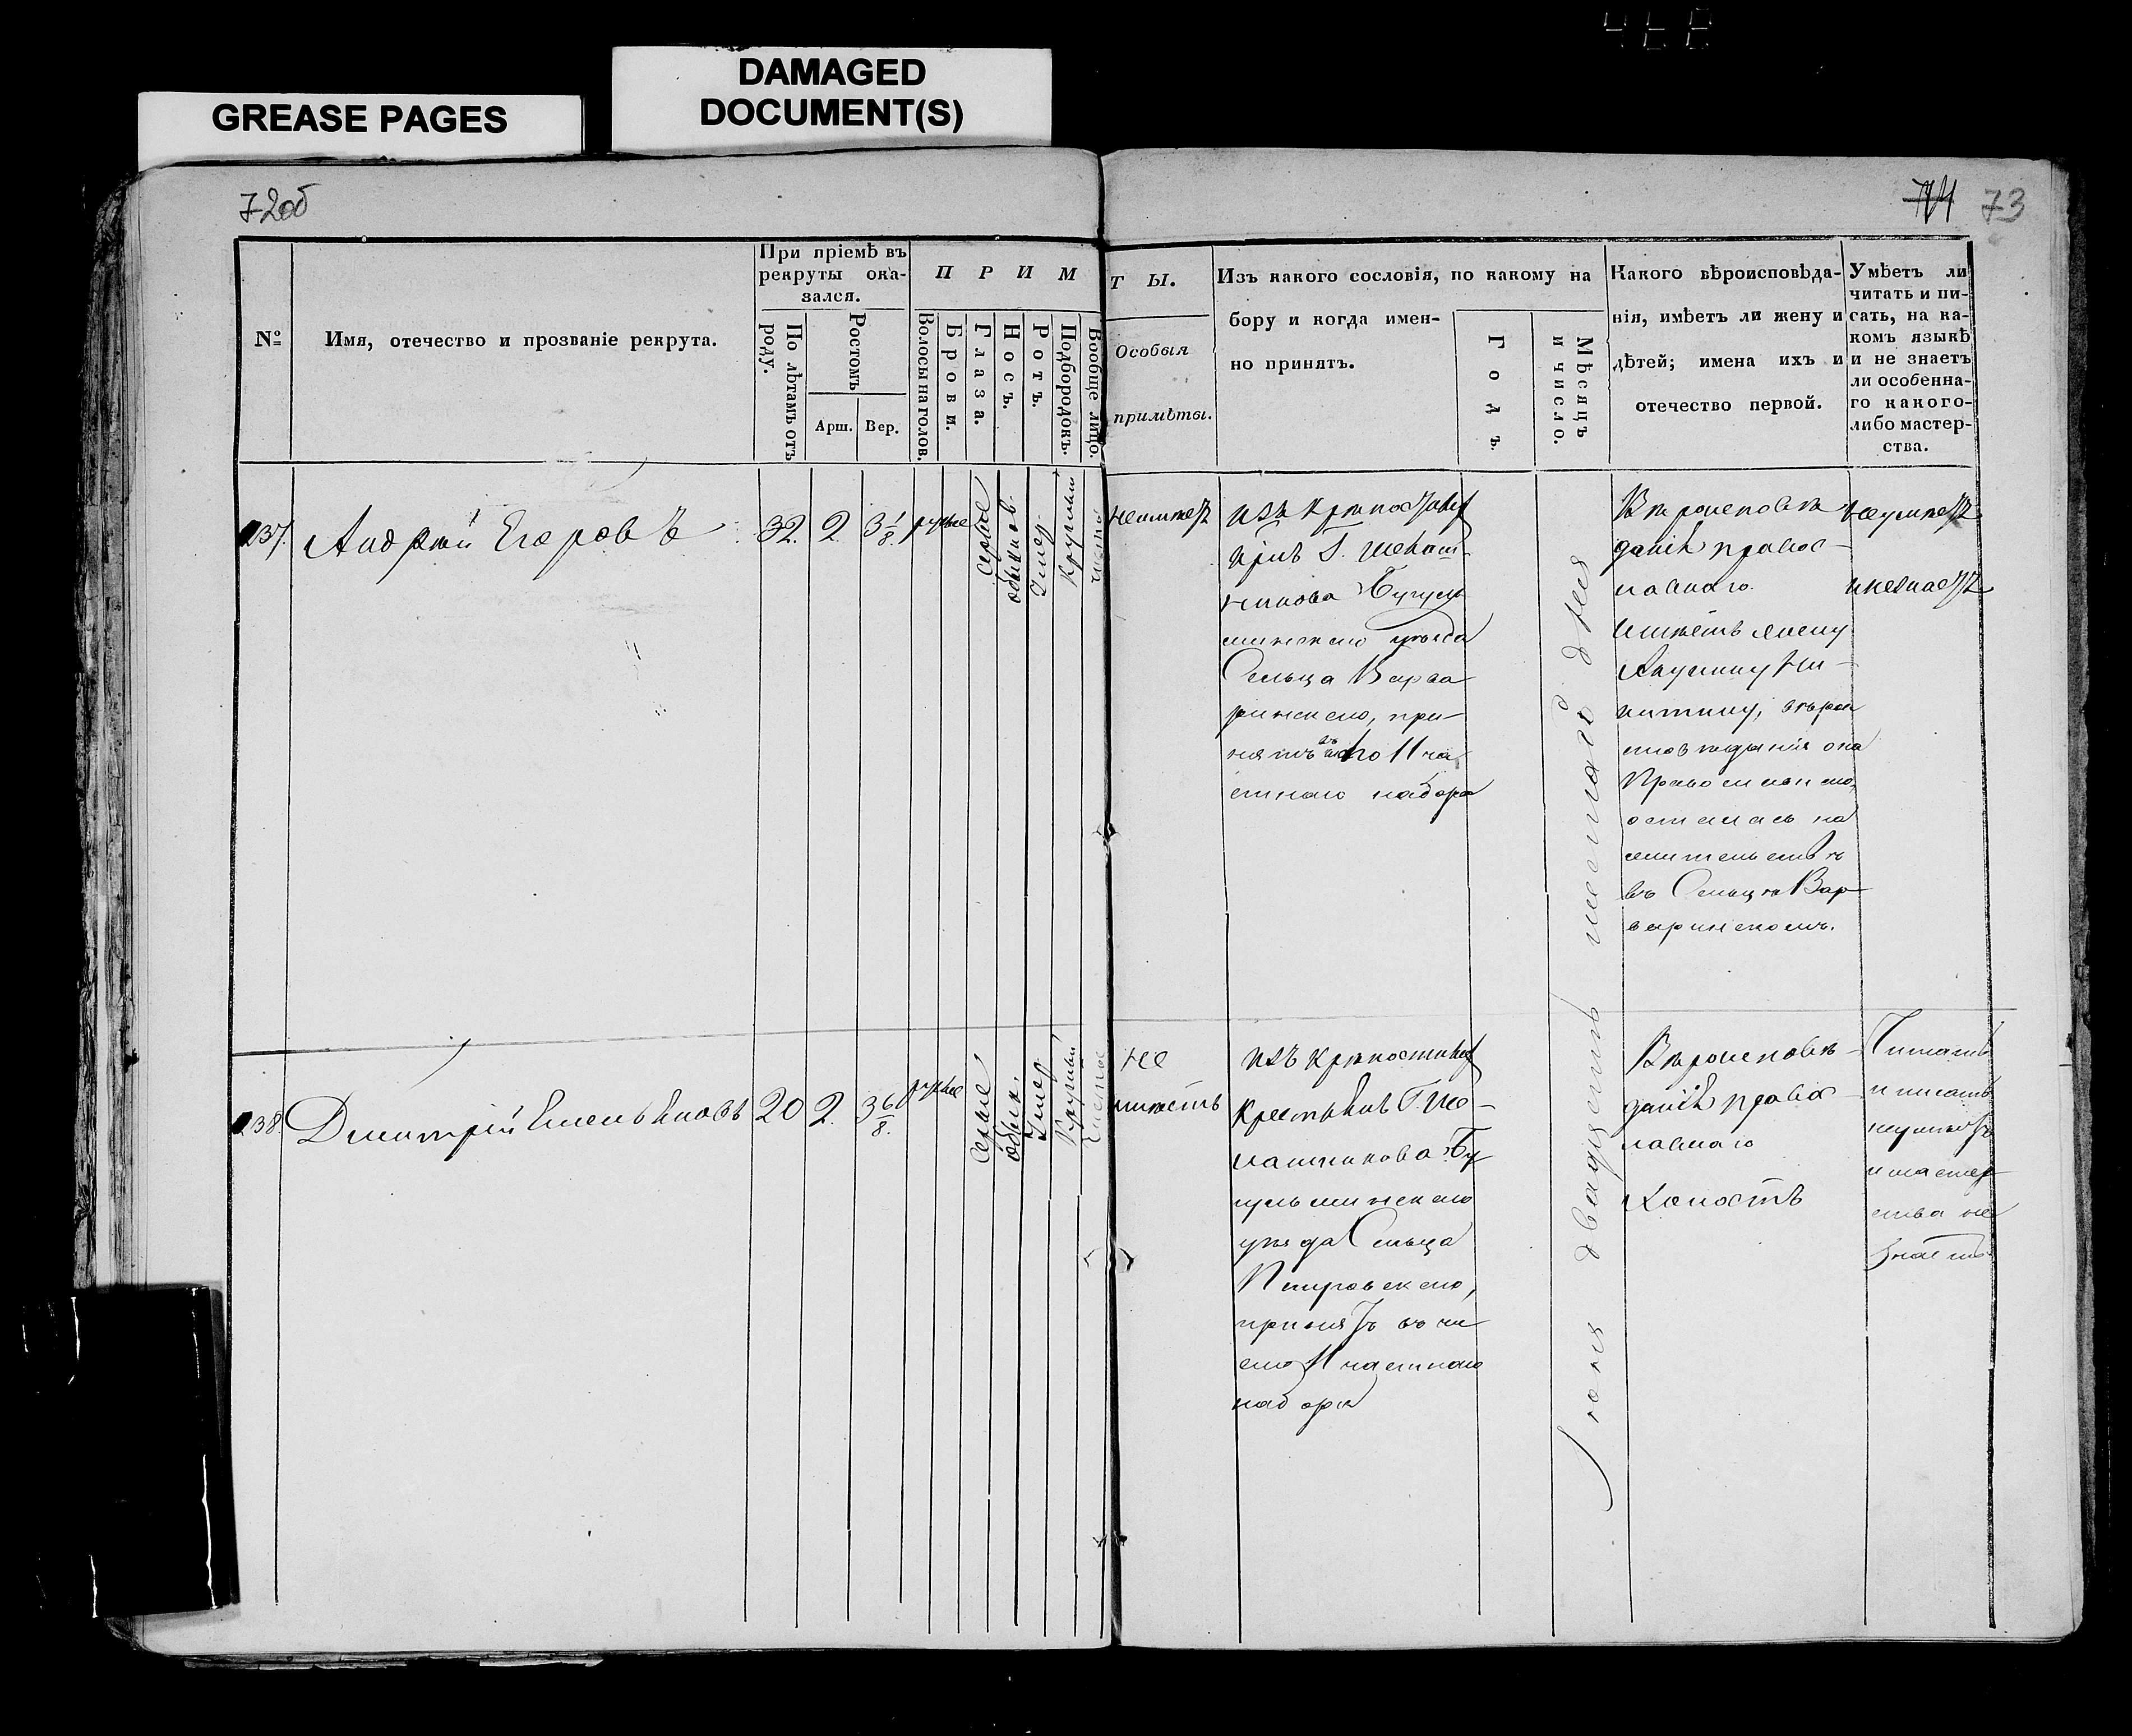 GREASE PAGES
DAMAGED
DOCUMENT(S)
72об
74 73
№
Имя, отечество и прозваніе рекрута.
При пріемѣ въ
рекруты ока-
зался.
По лѣтамъ отъ
роду.
Ростомъ
Арш.
Вер.
П Р И М
Волосы на голов.
Брови.
Глаза.
Носъ.
Ротъ.
Подбородокъ.
Вообще лицо.
Т Ы.
Особыя
примѣты.
Изъ какого сословія, по какому на
бору и когда имен-
но принятъ.
Годъ.
Мѣсяцъ
и число.
Какого вѣроисповѣда-
нія, имѣетъ ли жену и
дѣтей; имена ихъ и
отечество первой.
Умѣетъ ли
читать и пи-
сать, на ка-
комъ языкѣ
и не знаетъ
ли особенна-
го какого-
либо мастер-
ства.
237.
Андрей Егоровъ
32.
2
3 1/8.
русые
серые
обыкнов.
Умер.
Круглый
чистое
неимеетъ
изъ крѣпостныхъ
Г. Шелаш-
никова Бугуль
минскаго уѣзда
Сельца Варва
ринскаго, при-
нятъ въ
частнаго набора
Вѣроисповѣ-
данія правос-
лавнаго.
имѣетъ жену
Акулину Ни-
китину, вѣрои
исповѣданія она
Православнаго,
осталась на
жительствѣ
въ Сельцѣ Вар-
варинскомъ.
неумѣетъ
и незнаетъ
Іюня двадцать шестаго дня
238.
Дмитрій Емельяновъ
20
2.
3 6/8.
русые
Серые
обык.
Умер.
Круглый
Чистое
не
имѣетъ
изъ крѣпостныхъ
крестьянъ Г. Ше-
лашникова Бу
гульминскаго
уѣзда Сельца
Петровскаго,
принятъ въ чи
сло частнаго
набора
Вѣроисповѣ-
данія правос
лавнаго
Холостъ
Читать
и писать
неумѣетъ
и мастер-
ства не
знаетъ